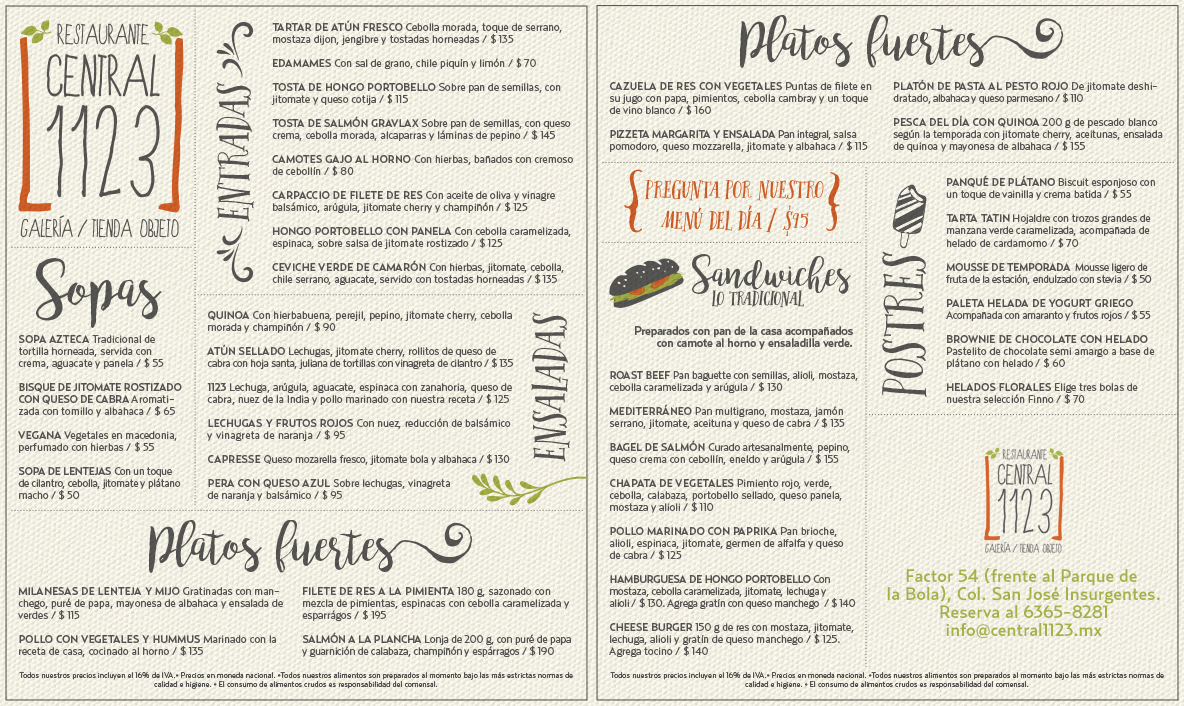 RESTAURANTE
CENTRAL
1123
GALERÍA / TIENDA OBJETO
Sopas
SOPA AZTECA Tradicional de
tortilla horneada, servida con
crema, aguacate y panela / $ 55
BISQUE DE JITOMATE ROSTIZADO
CON QUESO DE CABRA Aromati-
zada con tomillo y albahaca / $ 65
VEGANA Vegetales en macedonia,
perfumado con hierbas / $ 55
SOPA DE LENTEJAS Con un toque
de cilantro, cebolla, jitomate y plátano
macho / $ 50
ENTRADAS
TARTAR DE ATÚN FRESCO Cebolla morada, toque de serrano,
mostaza dijon, jengibre y tostadas horneadas / $ 135
EDAMAMES Con sal de grano, chile piquín y limón / $ 70
TOSTA DE HONGO PORTOBELLO Sobre pan de semillas, con
jitomate y queso cotija / $ 115
TOSTA DE SALMÓN GRAVLAX Sobre pan de semillas, con queso
crema, cebolla morada, alcaparras y láminas de pepino / $ 145
CAMOTES GAJO AL HORNO Con hierbas, bañados con cremoso
de cebollín / $ 80
CARPACCIO DE FILETE DE RES Con aceite de oliva y vinagre
balsámico, arúgula, jitomate cherry y champiñón / $ 125
HONGO PORTOBELLO CON PANELA Con cebolla caramelizada,
espinaca, sobre salsa de jitomate rostizado / $ 125
CEVICHE VERDE DE CAMARÓN Con hierbas, jitomate, cebolla,
chile serrano, aguacate, servido con tostadas horneadas / $ 135
QUINOA Con hierbabuena, perejil, pepino, jitomate cherry, cebolla
morada y champiñón / $ 90
ATÚN SELLADO Lechugas, jitomate cherry, rollitos de queso de
cabra con hoja santa, juliana de tortillas con vinagreta de cilantro / $ 135
1123 Lechuga, arúgula, aguacate, espinaca con zanahoria, queso de
cabra, nuez de la India y pollo marinado con nuestra receta / $ 125
LECHUGAS Y FRUTOS ROJOS Con nuez, reducción de balsámico
y vinagreta de naranja / $ 95
CAPRESSE Queso mozarella fresco, jitomate bola y albahaca / $ 130
PERA CON QUESO AZUL Sobre lechugas, vinagreta
de naranja y balsámico / $ 95
ENSALADAS
Platos fuertes
MILANESAS DE LENTEJA Y MIJO Gratinadas con man-
chego, puré de papa, mayonesa de albahaca y ensalada de
verdes / $ 115
POLLO CON VEGETALES Y HUMMUS Marinado con la
receta de casa, cocinado al horno / $ 135
FILETE DE RES A LA PIMIENTA 180 g, sazonado con
mezcla de pimientas, espinacas con cebolla caramelizada y
esparrágos / $ 195
SALMÓN A LA PLANCHA Lonja de 200 g, con puré de papa
y guarnición de calabaza, champiñón y espárragos / $ 190
Todos nuestros precios incluyen el 16% de IVA.• Precios en moneda nacional. •Todos nuestros alimentos son preparados al momento bajo las más estrictas normas de
calidad e higiene. • El consumo de alimentos crudos es responsabilidad del comensal.
Platos fuertes
CAZUELA DE RES CON VEGETALES Puntas de filete en
su jugo con papa, pimientos, cebolla cambray y un toque
de vino blanco / $ 160
PIZZETA MARGARITA Y ENSALADA Pan integral, salsa
pomodoro, queso mozzarella, jitomate y albahaca / $ 115
PLATÓN DE PASTA AL PESTO ROJO De jitomate deshi-
dratado, albahaca y queso parmesano / $ 110
PESCA DEL DÍA CON QUINOA 200 g de pescado blanco
según la temporada con jitomate cherry, aceitunas, ensalada
de quinoa y mayonesa de albahaca / $ 155
PREGUNTA POR NUESTRO
MENÚ DEL DÍA / $95
Sandwiches
LO TRADICIONAL
Preparados con pan de la casa acompañados
con camote al horno y ensaladilla verde.
ROAST BEEF Pan baguette con semillas, alioli, mostaza,
cebolla caramelizada y arúgula / $ 130
MEDITERRÁNEO Pan multigrano, mostaza, jamón
serrano, jitomate, aceituna y queso de cabra / $ 135
BAGEL DE SALMÓN Curado artesanalmente, pepino,
queso crema con cebollín, eneldo y arúgula / $ 155
CHAPATA DE VEGETALES Pimiento rojo, verde,
cebolla, calabaza, portobello sellado, queso panela,
mostaza y alioli / $ 110
POLLO MARINADO CON PAPRIKA Pan brioche,
alioli, espinaca, jitomate, germen de alfalfa y queso
de cabra / $ 125
HAMBURGUESA DE HONGO PORTOBELLO Con
mostaza, cebolla caramelizada, jitomate, lechuga y
alioli / $ 130. Agrega gratín con queso manchego / $ 140
CHEESE BURGER 150 g de res con mostaza, jitomate,
lechuga, alioli y gratín de queso manchego / $ 125.
Agrega tocino / $ 140
POSTRES
PANQUÉ DE PLÁTANO Biscuit esponjoso con
un toque de vainilla y crema batida / $ 55
TARTA TATIN Hojaldre con trozos grandes de
manzana verde caramelizada, acompañada de
helado de cardamomo / $ 70
MOUSSE DE TEMPORADA Mousse ligero de
fruta de la estación, endulzado con stevia / $ 50
PALETA HELADA DE YOGURT GRIEGO
Acompañada con amaranto y frutos rojos / $ 55
BROWNIE DE CHOCOLATE CON HELADO
Pastelito de chocolate semi amargo a base de
plátano con helado / $ 60
HELADOS FLORALES Elige tres bolas de
nuestra selección Finno / $ 70
RESTAURANTE
CENTRAL
1123
GALERÍA / TIENDA OBJETO
Factor 54 (frente al Parque de
la Bola), Col. San José Insurgentes.
Reserva al 6365-8281
info@central1123.mx
Todos nuestros precios incluyen el 16% de IVA.• Precios en moneda nacional. •Todos nuestros alimentos son preparados al momento bajo las más estrictas normas de
calidad e higiene. • El consumo de alimentos crudos es responsabilidad del comensal.